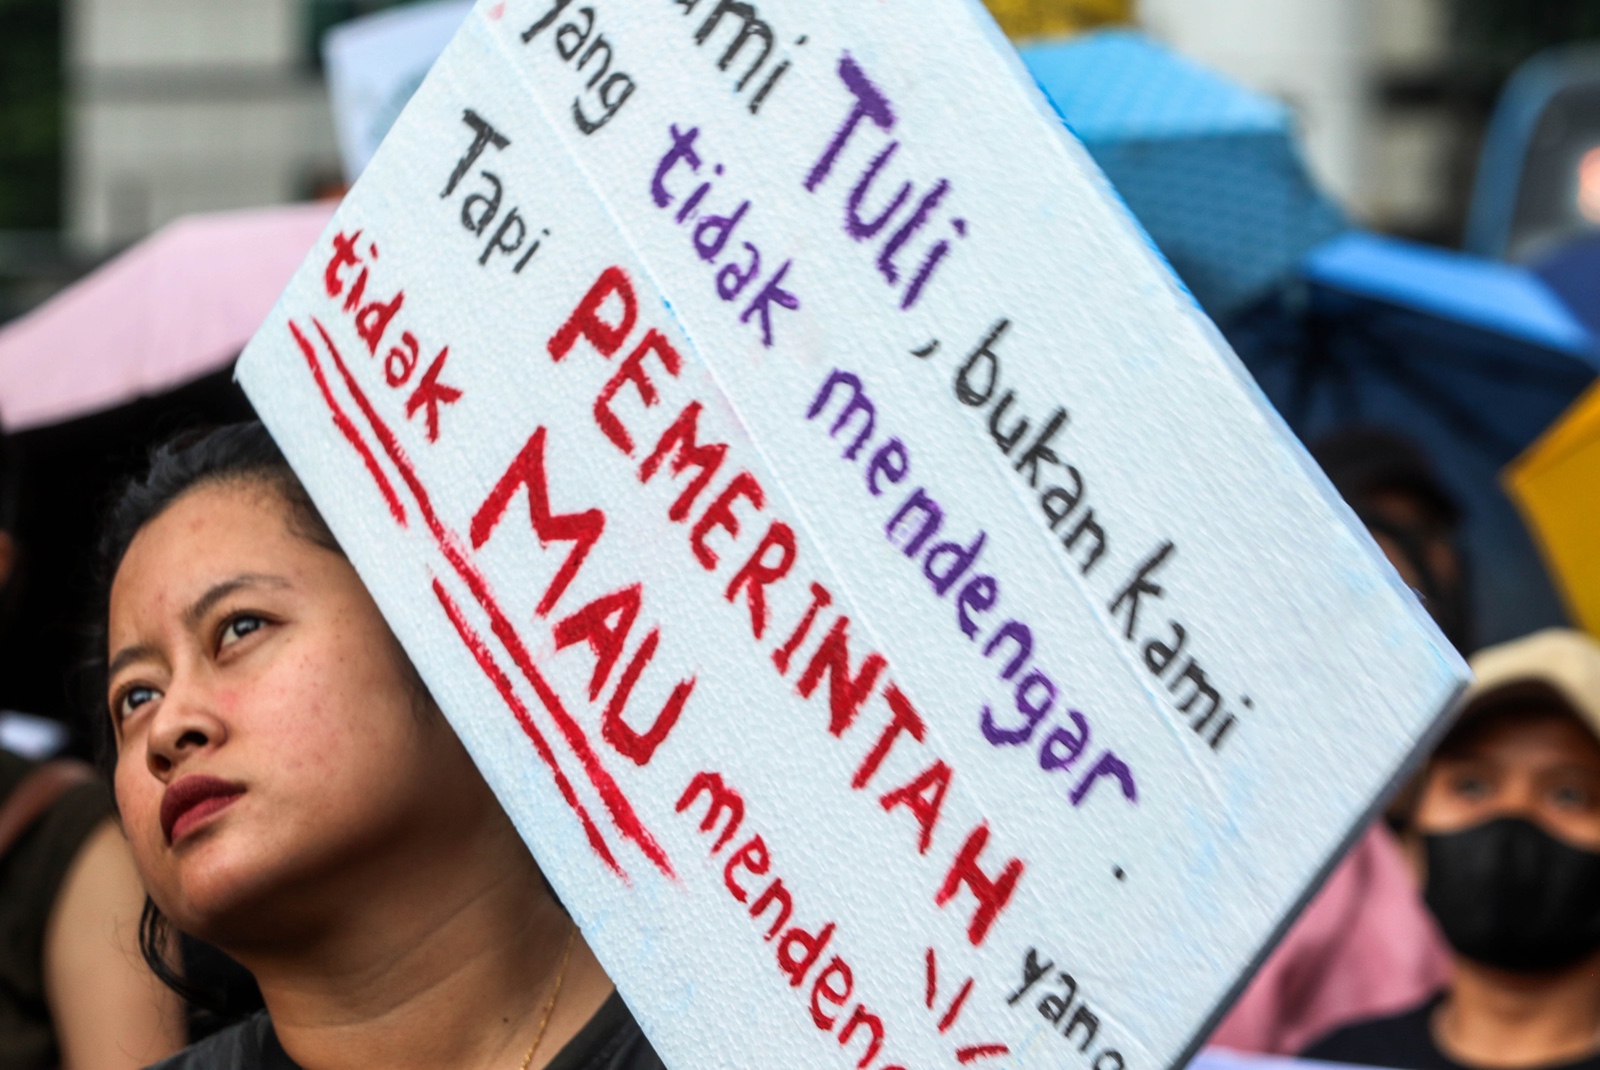 ami Tuli, bukan kami
yang tidak mendengar.
Tapi PEMERINTAH yang
tidak MAU mendeng